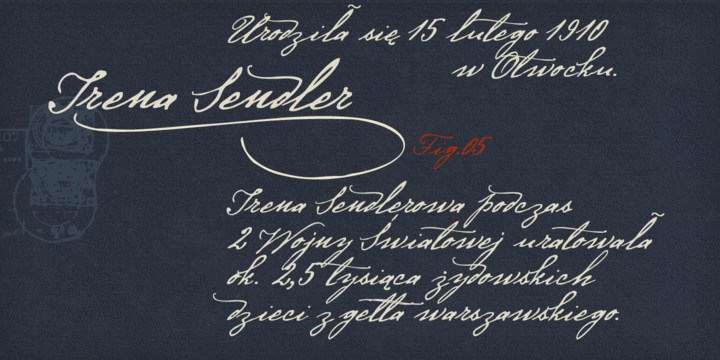 Urodziła się 15 lutego 1910
w Otwocku.
Irena Sendler
Fig.05
Irena Sendlerowa podczas
2 Wojny Światowej uratowała
ok. 2,5 tysiąca żydowskich
dzieci z getta warszawskiego.